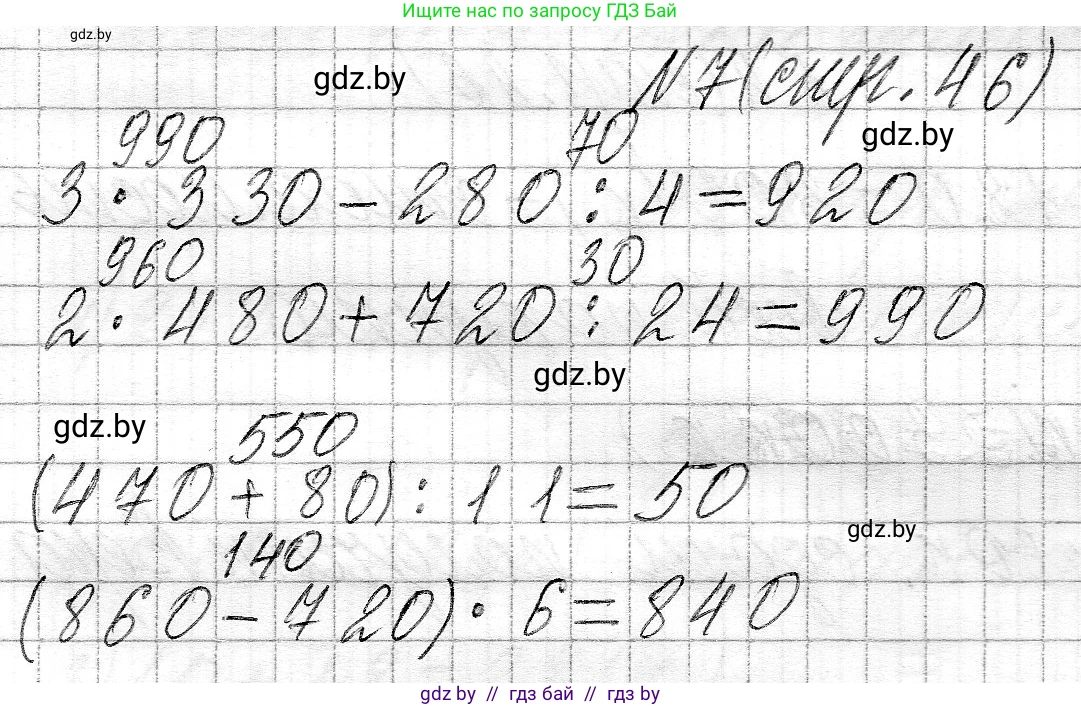 Ищите нас по запросу ГДЗ Бай
gdz.by
gdz.by
N 7 (стр. 46)
gdz.by
990 70
3 · 330 - 280 : 4 = 920
960 30
2 · 480 + 720 : 24 = 990
gdz.by
gdz.by
550
(470 + 80) : 11 = 50
gdz.by
140
(860 - 720) · 6 = 840
gdz by // гдз бай // гдз by